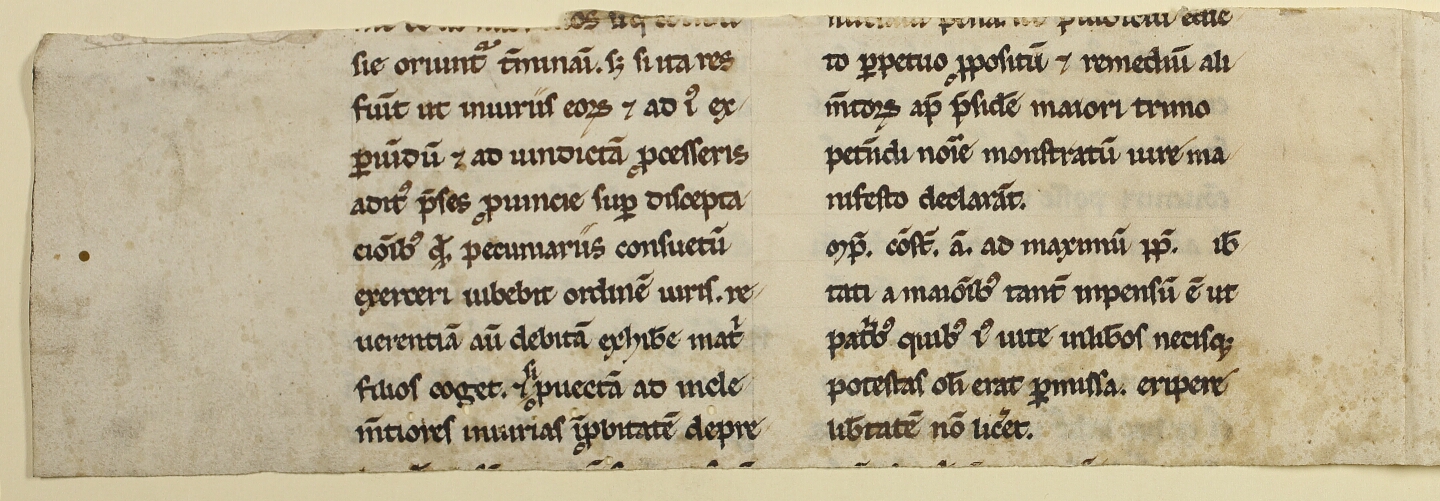 sie oriunt᷑ t̄minai᷑. sꝫ si ita res
fuīt ut iniuriis eoꝝ ⁊ ad i᷒ ex
ꝑiūdū ⁊ ad uindictā ꝓcesseris
adit᷒ p̄ses ꝓuincie suꝑ discepta
ciōib᷒ pecuniariis consuetū
exerceri iubebit ordinē iuris. re
uerentiā aū debitā exhib̄e mat᷑
filios coget. ⁊ si ꝓuectā ad incle
m̄tiores iniurias īꝓbitatē depre
to ꝑpetuo ꝓpositū ⁊ remediū ali
m̄toꝝ ap̄ p̄sidē maiori trimo
petn̄di noīe monstratū iure ma
nifesto declarāt.
Imp̄. cōst̄. ā. ad maximū pp̄. lib̄
tati a maiōib᷒ tant̄ inpensū ē ut
patrib᷒ quib᷒ i᷒ uite in lib̄os necisqꝫ
potestas oli᷑ erat ꝑmissa. eripere
lib̄tatē nō liceret.